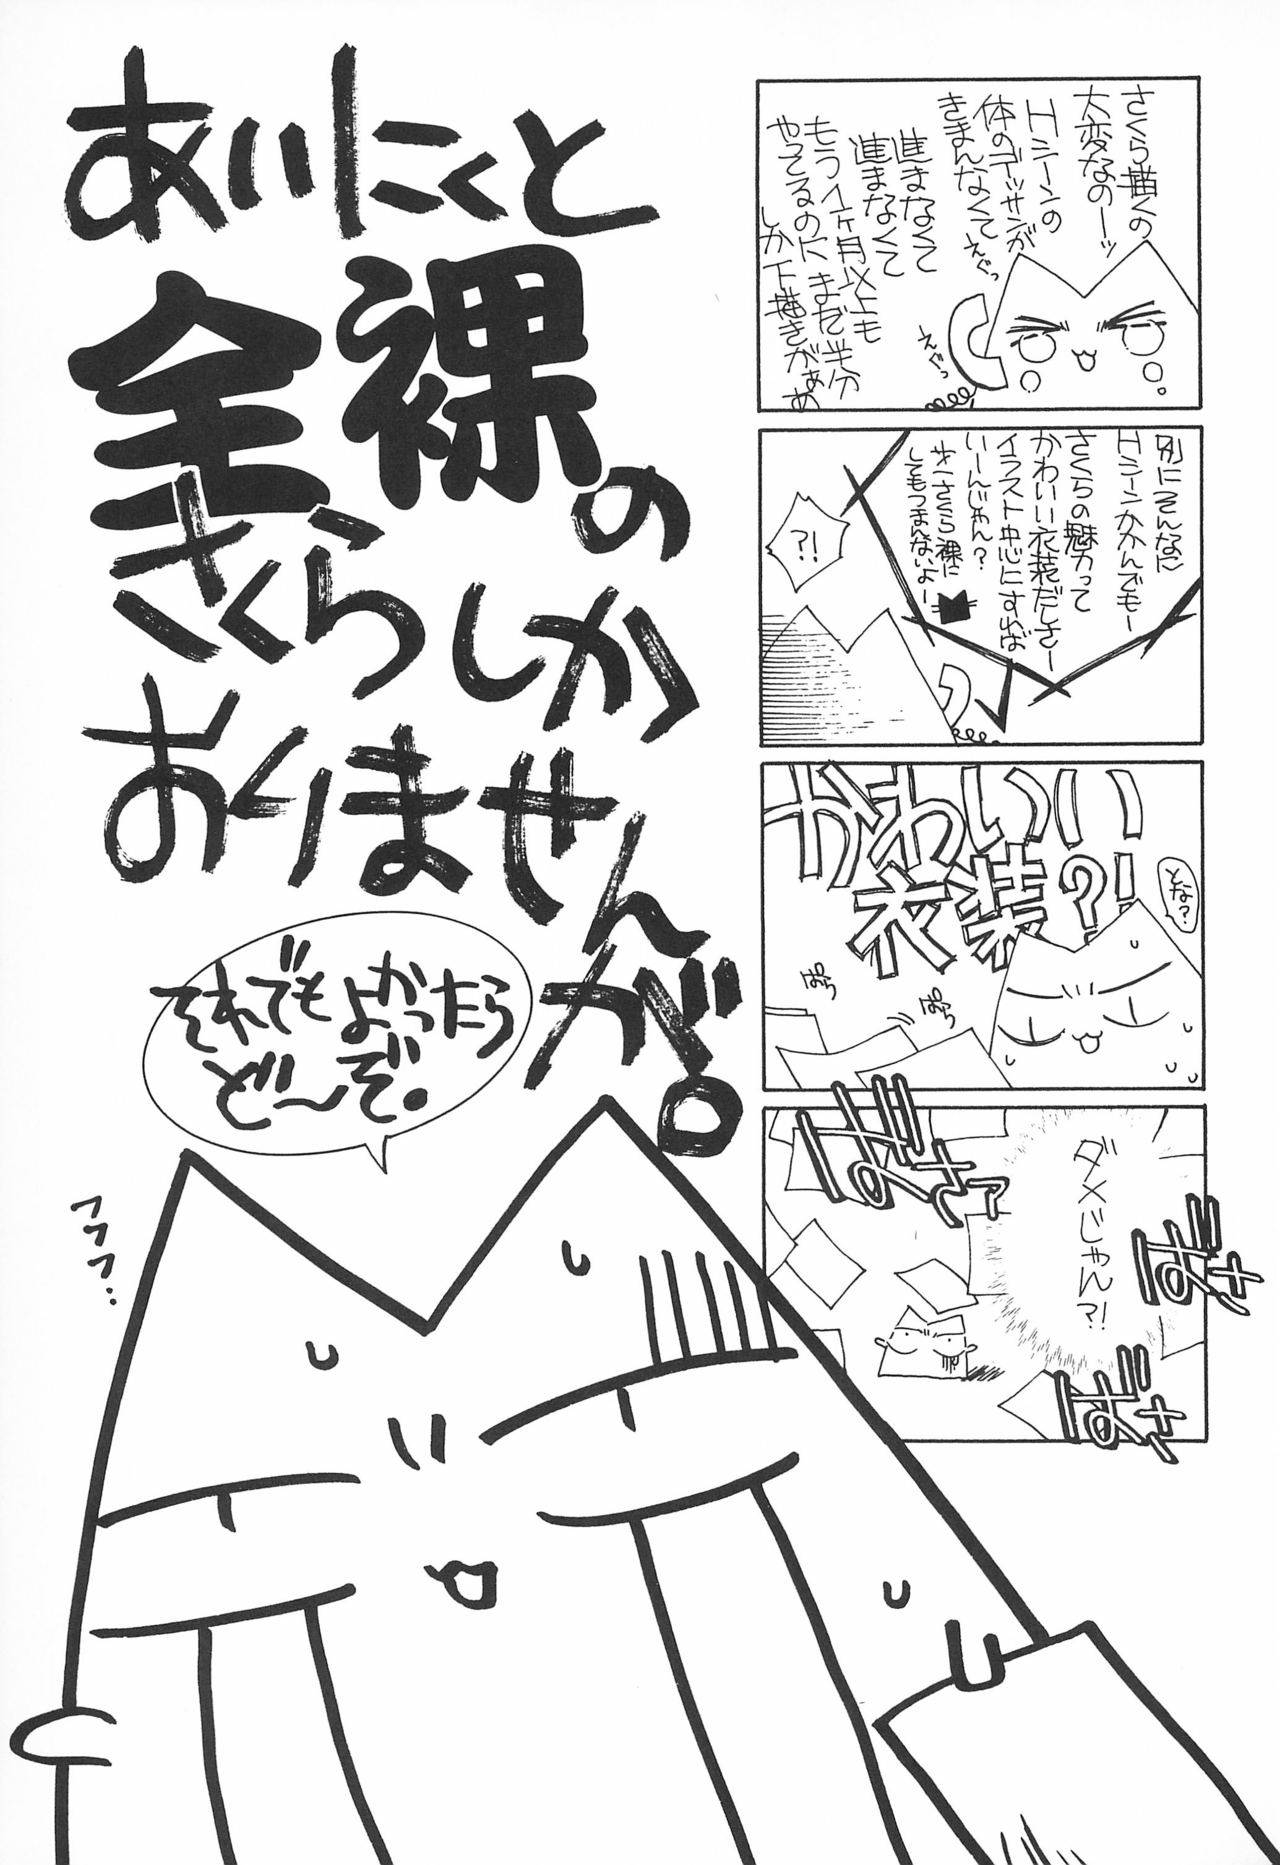 さくら描くの
大変なのーッ
Hシーンの
体のデッサンが
きまんなくて
えぐっ
えぐっ
進まなくて
進まなくて
もう1ヶ月以上も
やってるのにまだ半分
しか下描きがぁぁ
別にそんなに
Hシーンかかんでもー
さくらの魅力って
かわいい衣装だしさー
イラスト中心にすれば
いーんじゃん?
オーさくら裸に
してもつまんないよー
?!
かわいい
衣装?!
どな?
ぱらっ
ぱらっ
ダメじゃん?!
ばさァ
ばさ
ばさ
あいにくと
全裸の
さくらしか
おりませんが。
それでもよかったら
ど〜ぞ。
フフフ…